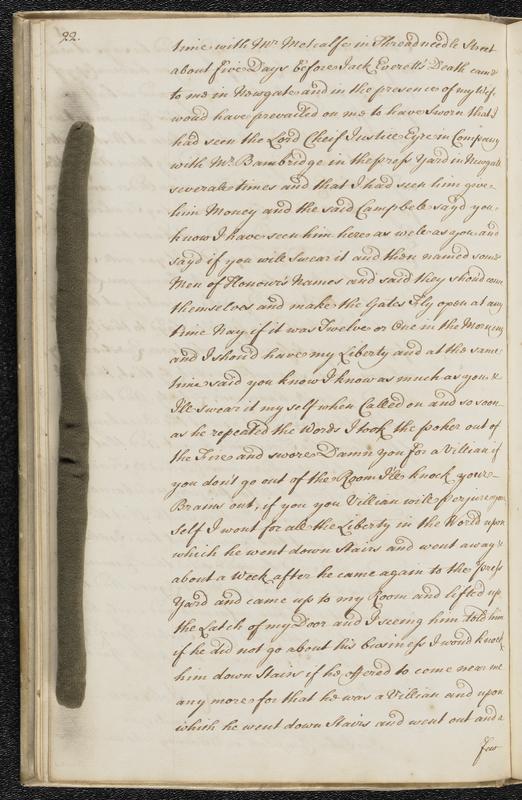 22.
time with Mr. Metcalfe in Threadneedle Street
about five Days before Jack Everett's Death came
to me in Newgate and in the presence of my Wife
would have prevailed on me to have sworn that I
had seen the Lord Cheif Justice Eyre in Company
with Mr. Bambridge in the press Yard in Newgate
severale times and that I had seen him give
him Money and the said Campbele sayd you
know I have seen him here as wele as you and
sayd if you wile Swear it and then named some
Men of Honour's Names and said they should come
themselves and make the Gates Fly open at any
time Nay if it was Twelve or One in the Morning
and I should have my Liberty and at the same
time said you know I know as much as you &
I'le swear it my self when Called on and so soon
as he repeated the Words I took the poker out of
the Fire and swore Damn you for a Villian if
you don't go out of the Room I'le knock your
Brains out, if you you Villian wile perjure your
self I wont for ale the Liberty in the World upon
which he went down Stairs and went away &
about a Week after he came again to the press
Yard and came up to my Room and lifted up
the Latch of my Door and I seeing him told him
if he did not go about his business I would knock
him down Stairs if he offered to come near me
any more for that he was a Villian and upon
which he went down Stairs and went out and a
few